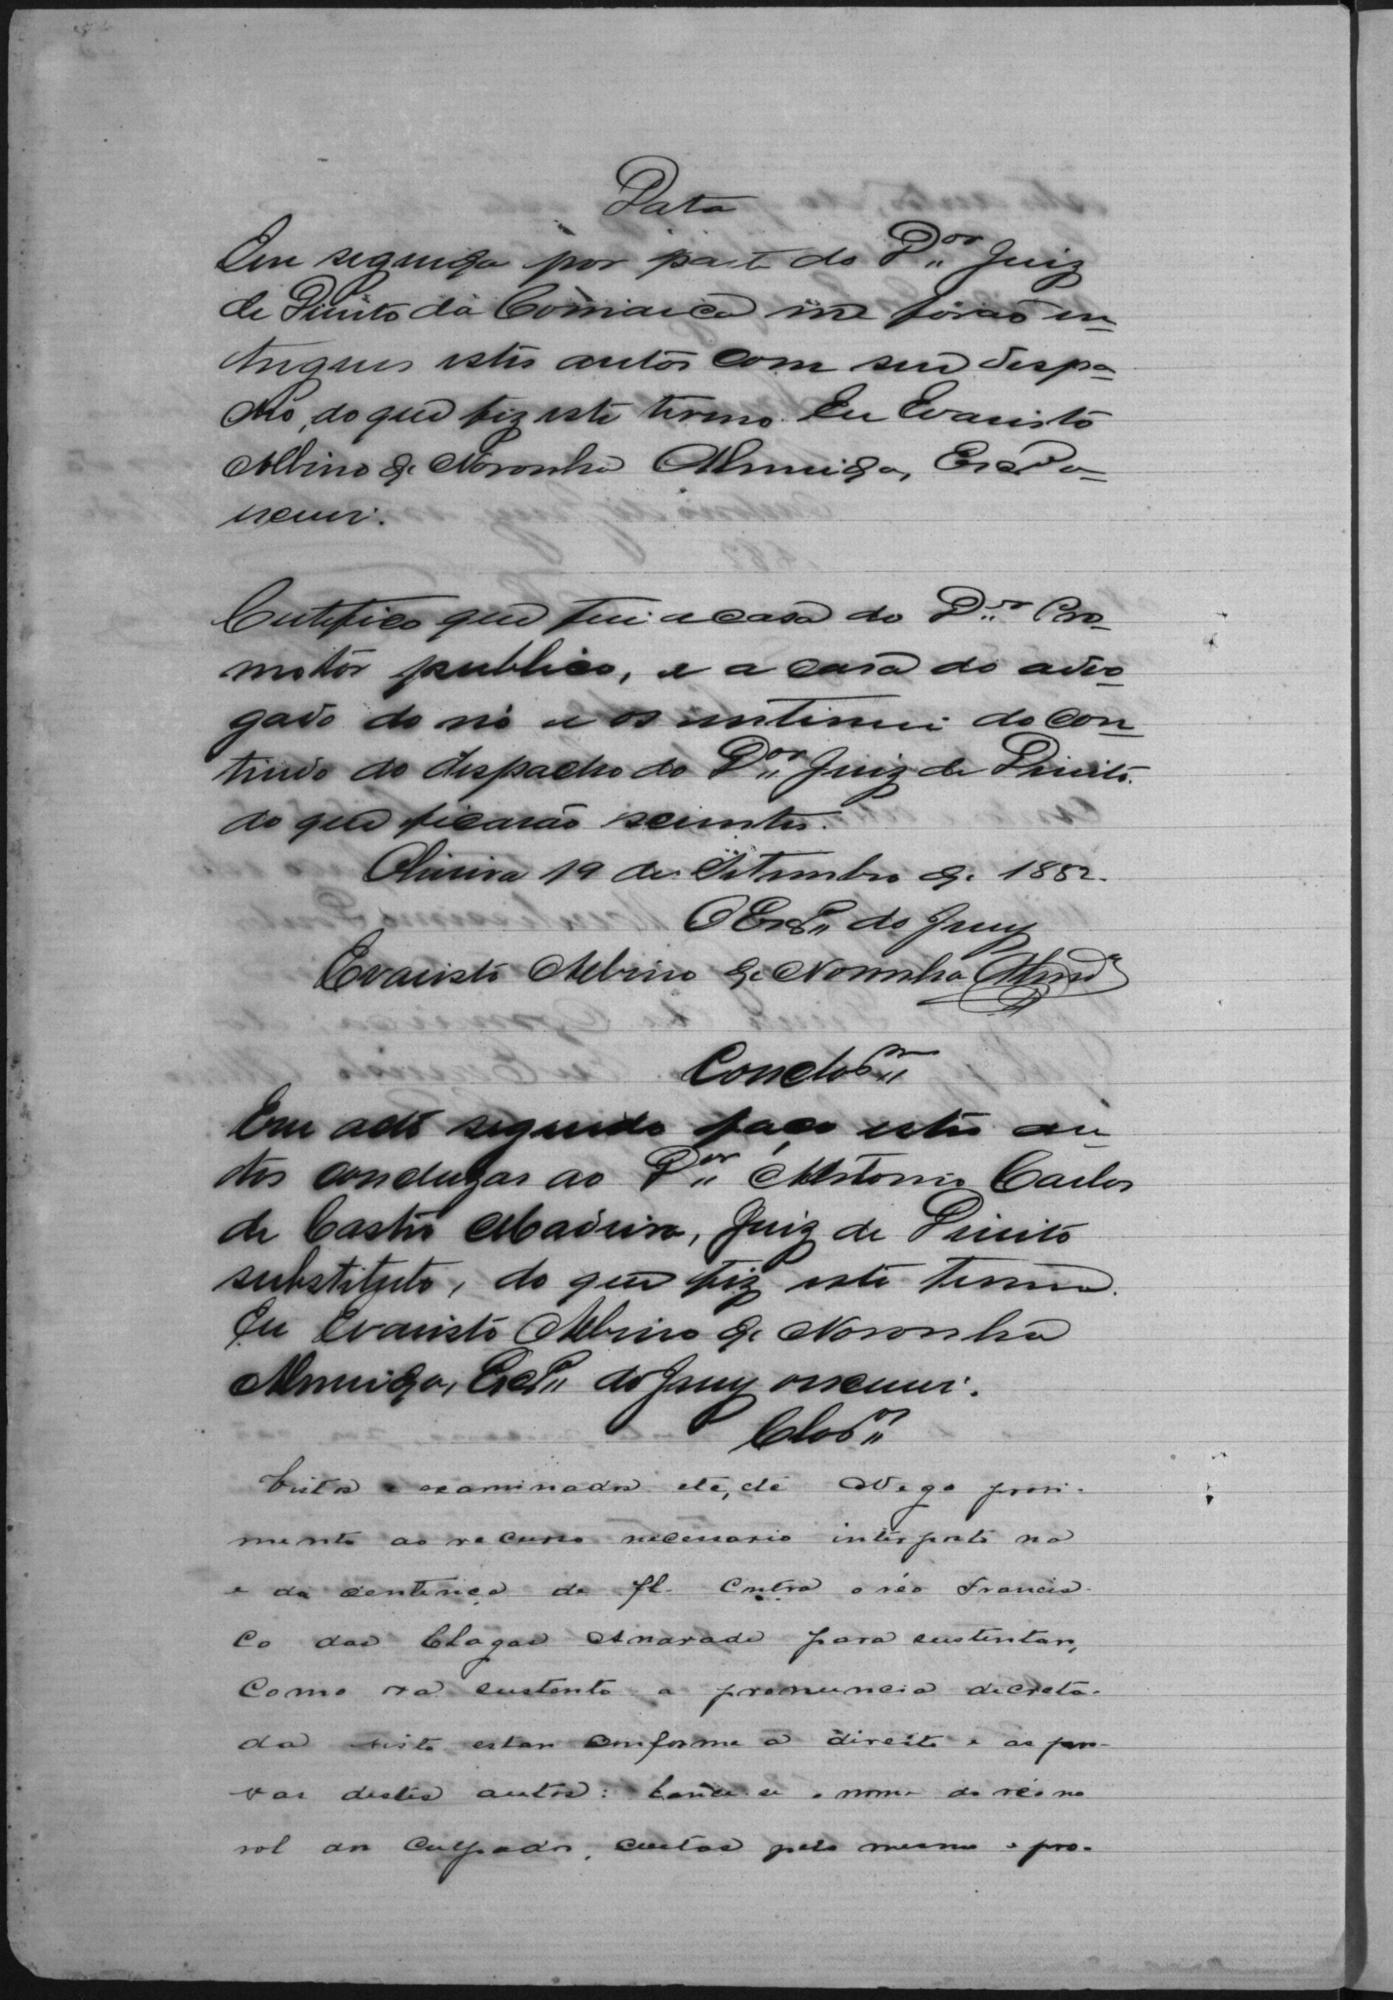 Data
Em seguida por parte do D.or Juiz
de Direito da Comarca me forão en-
tregues estes autos com seu despa-
cho, do que fiz este termo. Eu Evaristo
Albino de Noronha Almeida, Escrivão
escrevi.
Certifico que fui a casa do D.or Pro-
motor publico, e a casa do advo-
gado do réo e os intimei do con-
teudo do despacho do D.or Juiz de Direito.
do que ficarão scientes.
Oliveira 19 de Setembro de 1882.
O Escr.m do Jury
Evaristo Albino de Noronha Almd.a
Conclos.m
Em acto seguido faço estes au-
tos concluzos ao D.or Antonio Carlos
de Castro Madeira, Juiz de Direito
substituto, do que fiz este termo.
Eu Evaristo Albino de Noronha
Almeida, Escr.m do Jury escrevi.
Clos.os
Vistos e examinados etc, etc Nego provi-
mento ao recurso necessario interposto na
e da sentença de fl. contra o réo Francis-
co das Chagas Andrade para sustentar,
como ora sustento a pronuncia decreta-
da visto estar conforme a direito e as pro-
vas destes autos: Lance-se o nome do réo no
rol dos culpados, custas pelo mesmo e pro-